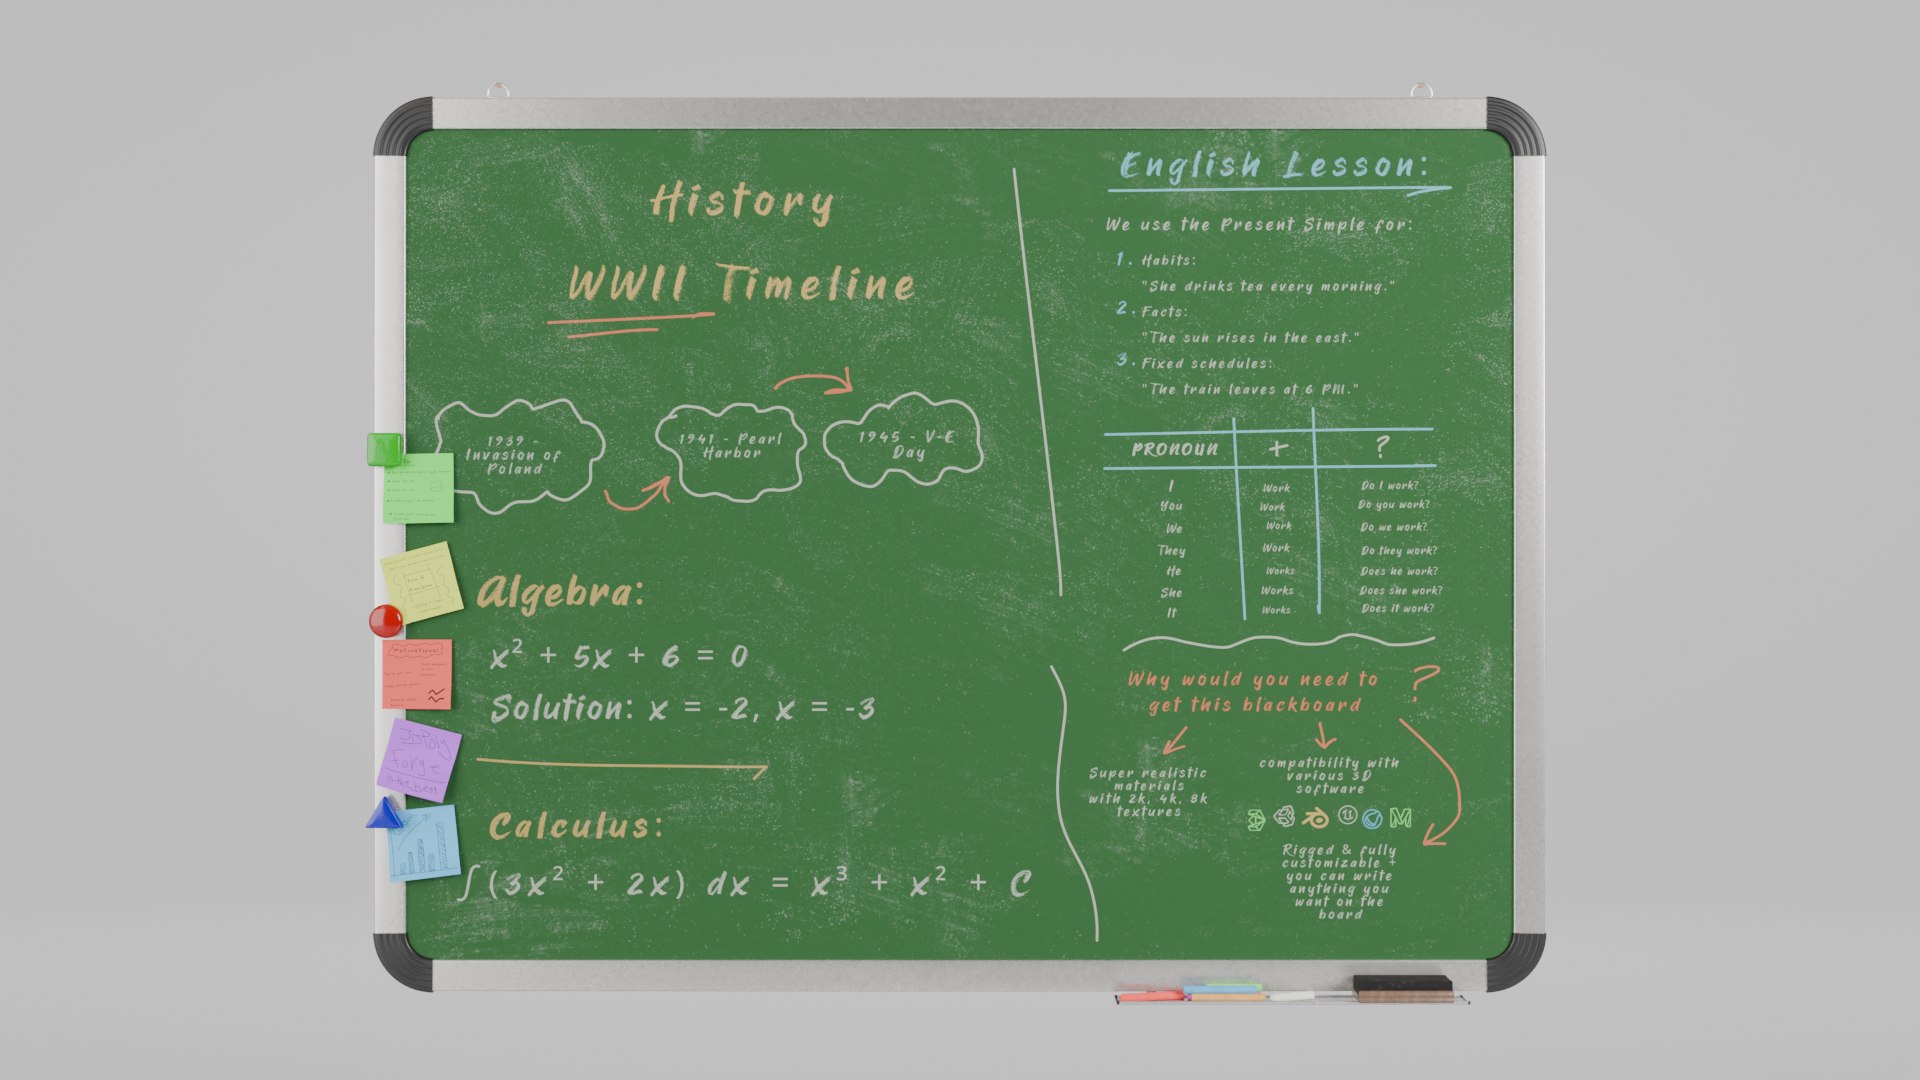 History
WWII Timeline
1939 -
Invasion of
Poland
1941 - Pearl
Harbor
1945 - V-E
Day
Algebra:
x² + 5x + 6 = 0
Solution: x = -2, x = -3
Calculus:
∫(3x² + 2x) dx = x³ + x² + C
English Lesson:
We use the Present Simple for:
1. Habits:
"She drinks tea every morning."
2. Facts:
"The sun rises in the east."
3. Fixed schedules:
"The train leaves at 6 PM."
PRONOUN + ?
I Work Do I work?
You Work Do you work?
We Work Do we work?
They Work Do they work?
He Works Does he work?
She Works Does she work?
It Works Does it work?
Why would you need to
get this blackboard ?
Super realistic
materials
with 2k, 4k, 8k
textures
compatibility with
various 3D
software
Rigged & fully
customizable +
you can write
anything you
want on the
board
Motivational
3DPoly
Forge
is the best